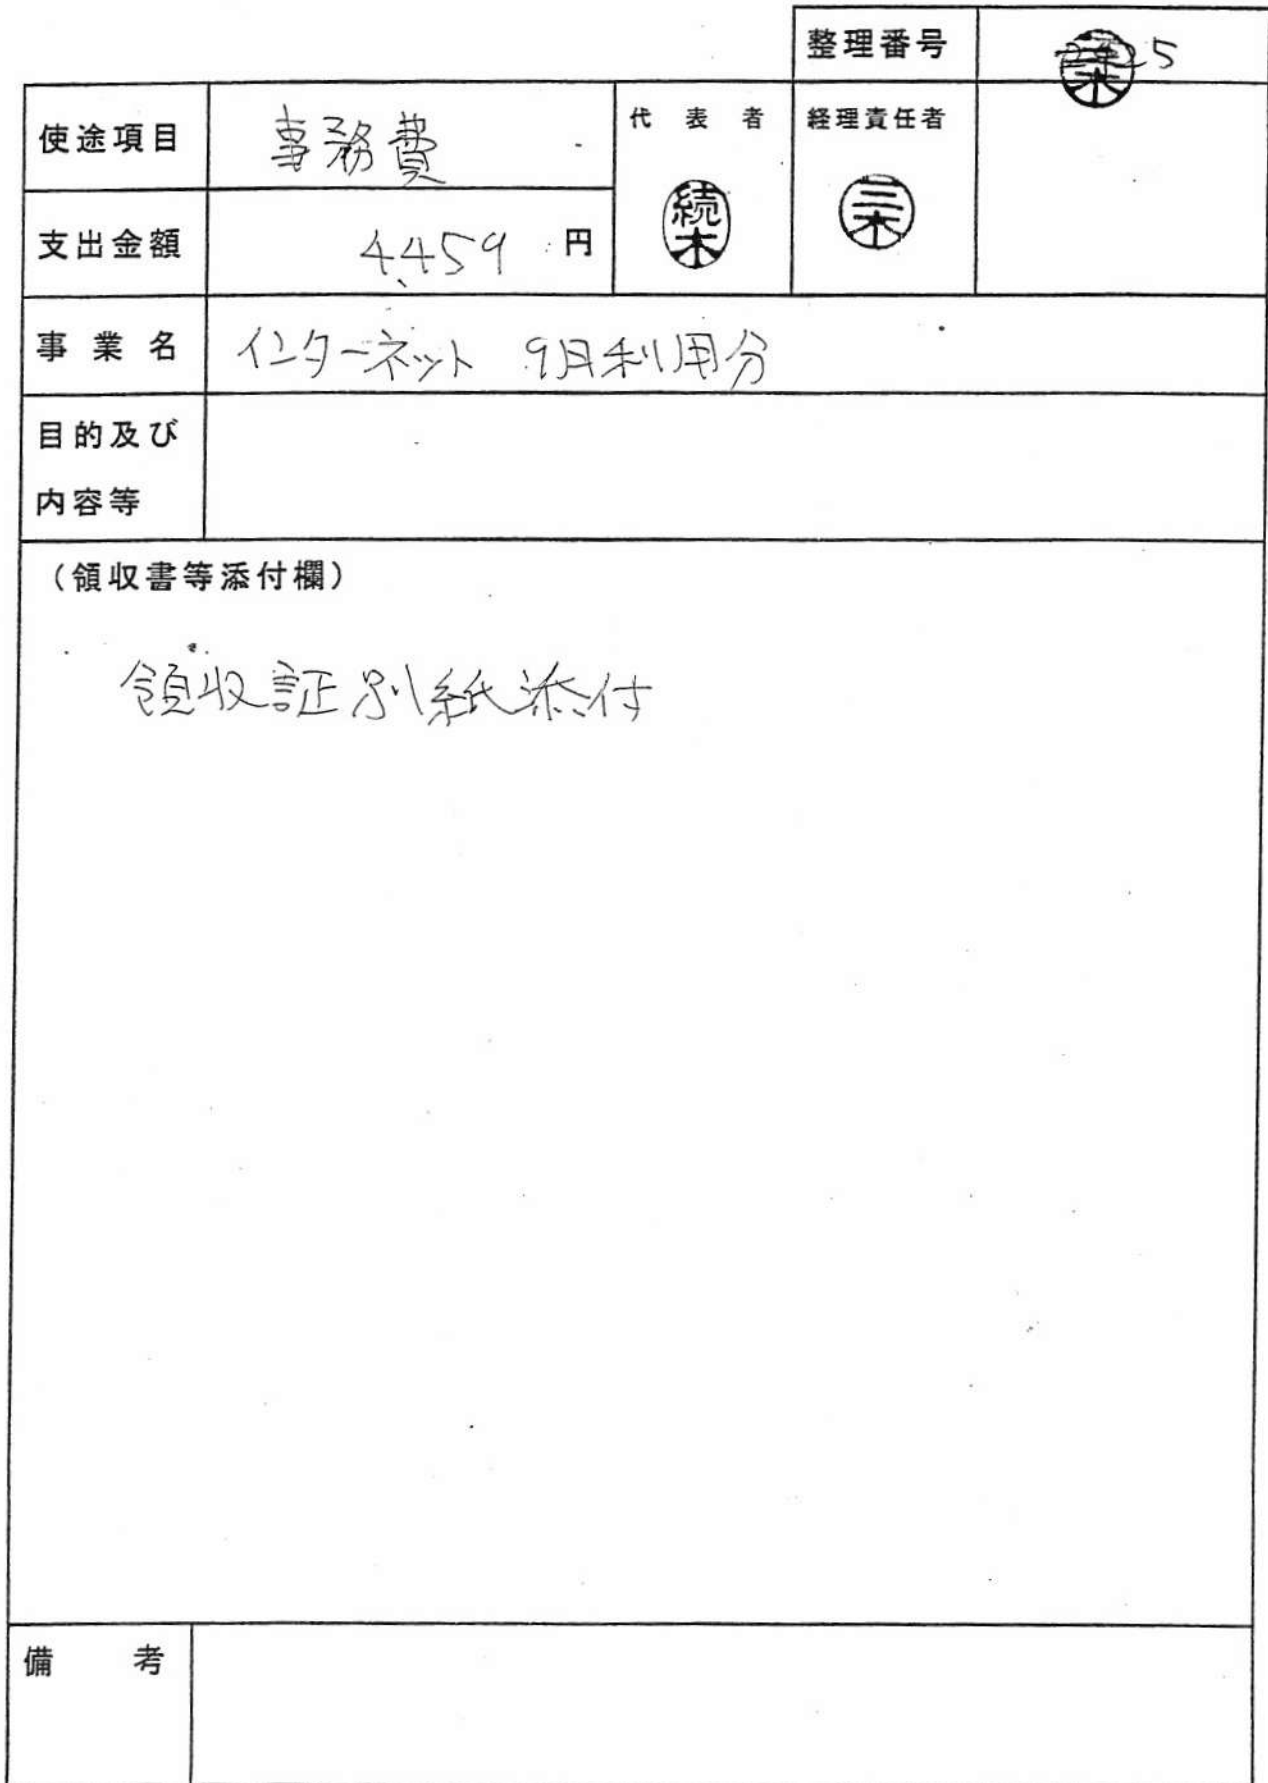 整理番号 25
使途項目 事務費
代表者 経理責任者
続木 三木
支出金額 4,459 円
事業名 インターネット 9月利用分
目的及び
内容等
(領収書等添付欄)
領収証別紙添付
備考